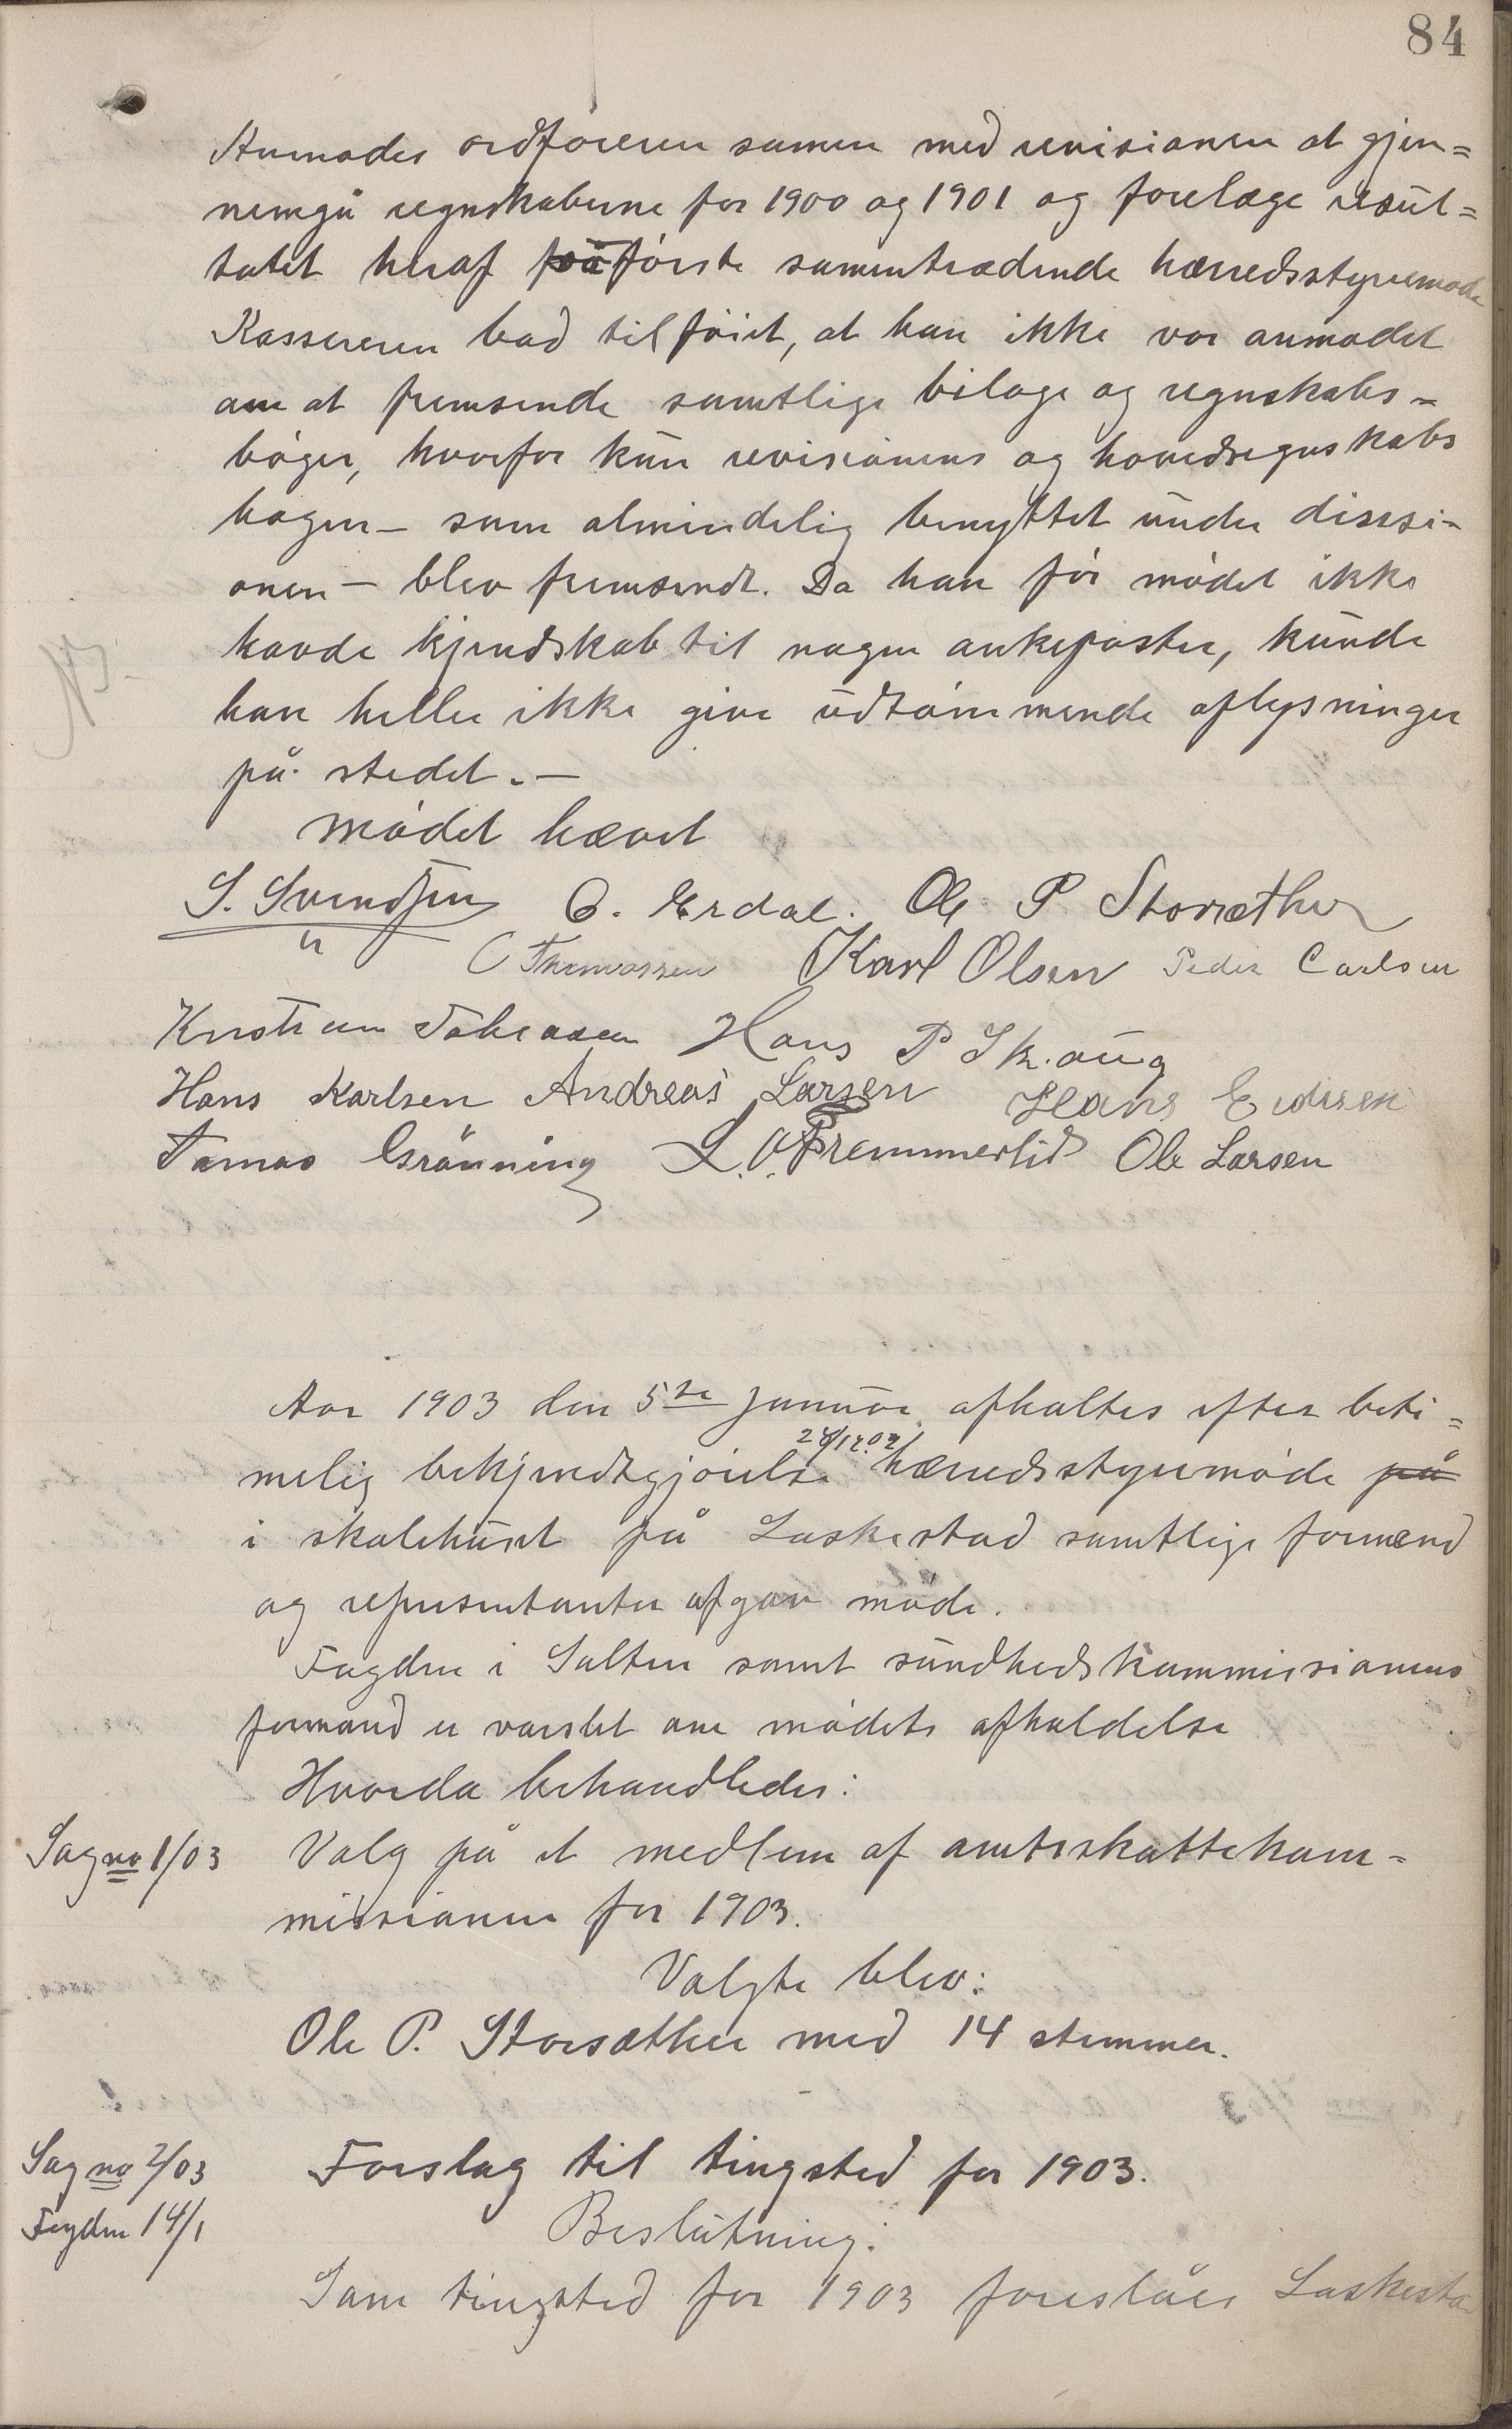 84
Anmodes ordføreren samen med revisionen at gjen=
nemgå regnskaberne for 1900 og 1901 og forelæge resul=
tatet heraf på første sammentrædende herredsstyremøde
Kassereren bad tilføiet, at han ikke var anmodet
om at fremsende samtlige bilage og regnskabs-
bøger, hvorfor kun revisionens og hovedregnskabs
bogen - som almindelig benyttet under dissi-
onen - blev fremsendt. Da han før mødet ikke
havde kjendskab til nogen ankeposter, kunde
han heller ikke give udtømmende oplysninger
på stedet. -
mødet hævet
S. Svendsen O. Erdal. Ole P Storsæther
C Thomassen Karl Olsen Peder Carlsen
Kristian Tobiassen Hans P Skaug
Hans Karlsen Andreas Larsen Hans Evensen
Tomas Grønning L. O. Fremmerlid Ole Larsen
Aar 1903 den 5te januar afholtes efter beti=
24/12.02
melig bekjendtgjørelse herredsstyremøde på
i skolehuset på Laskestad samtlige formænd
og representanter afgav møde.
Fogden i Salten samt sundhedskommissionens
formand er varslet om mødets afholdelse
Hvorda behandledes:
Sag no 1/03 Valg på et medlem af amtsskattekom=
missionen for 1903.
Valgte blev:
Ole P. Storsæther med 14 stemmer.
Sag no 2/03 Forslag til tingsted for 1903.
Fogden 14/1 Beslutning:
Som tingsted for 1903 foreslåes Laskestad